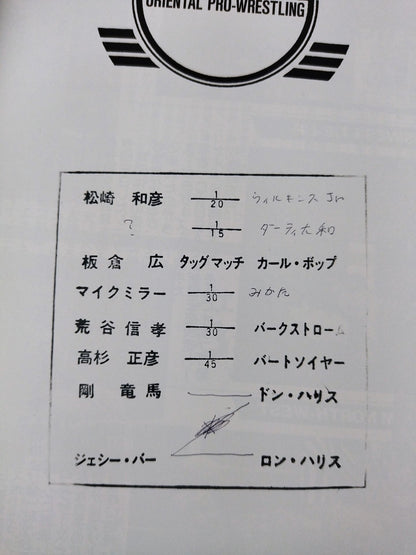 ORIENTAL PRO-WRESTLING
松崎 和彦 1/20 ウィルキンス Jr
? 1/15 ダーティ大和
板倉 広 タッグマッチ カール・ボップ
マイクミラー 1/30 みかた
荒谷信孝 1/30 バークストローム
高杉 正彦 1/45 バートソイヤー
剛 竜馬 ドン・ハリス
ジェシー・バー ロン・ハリス